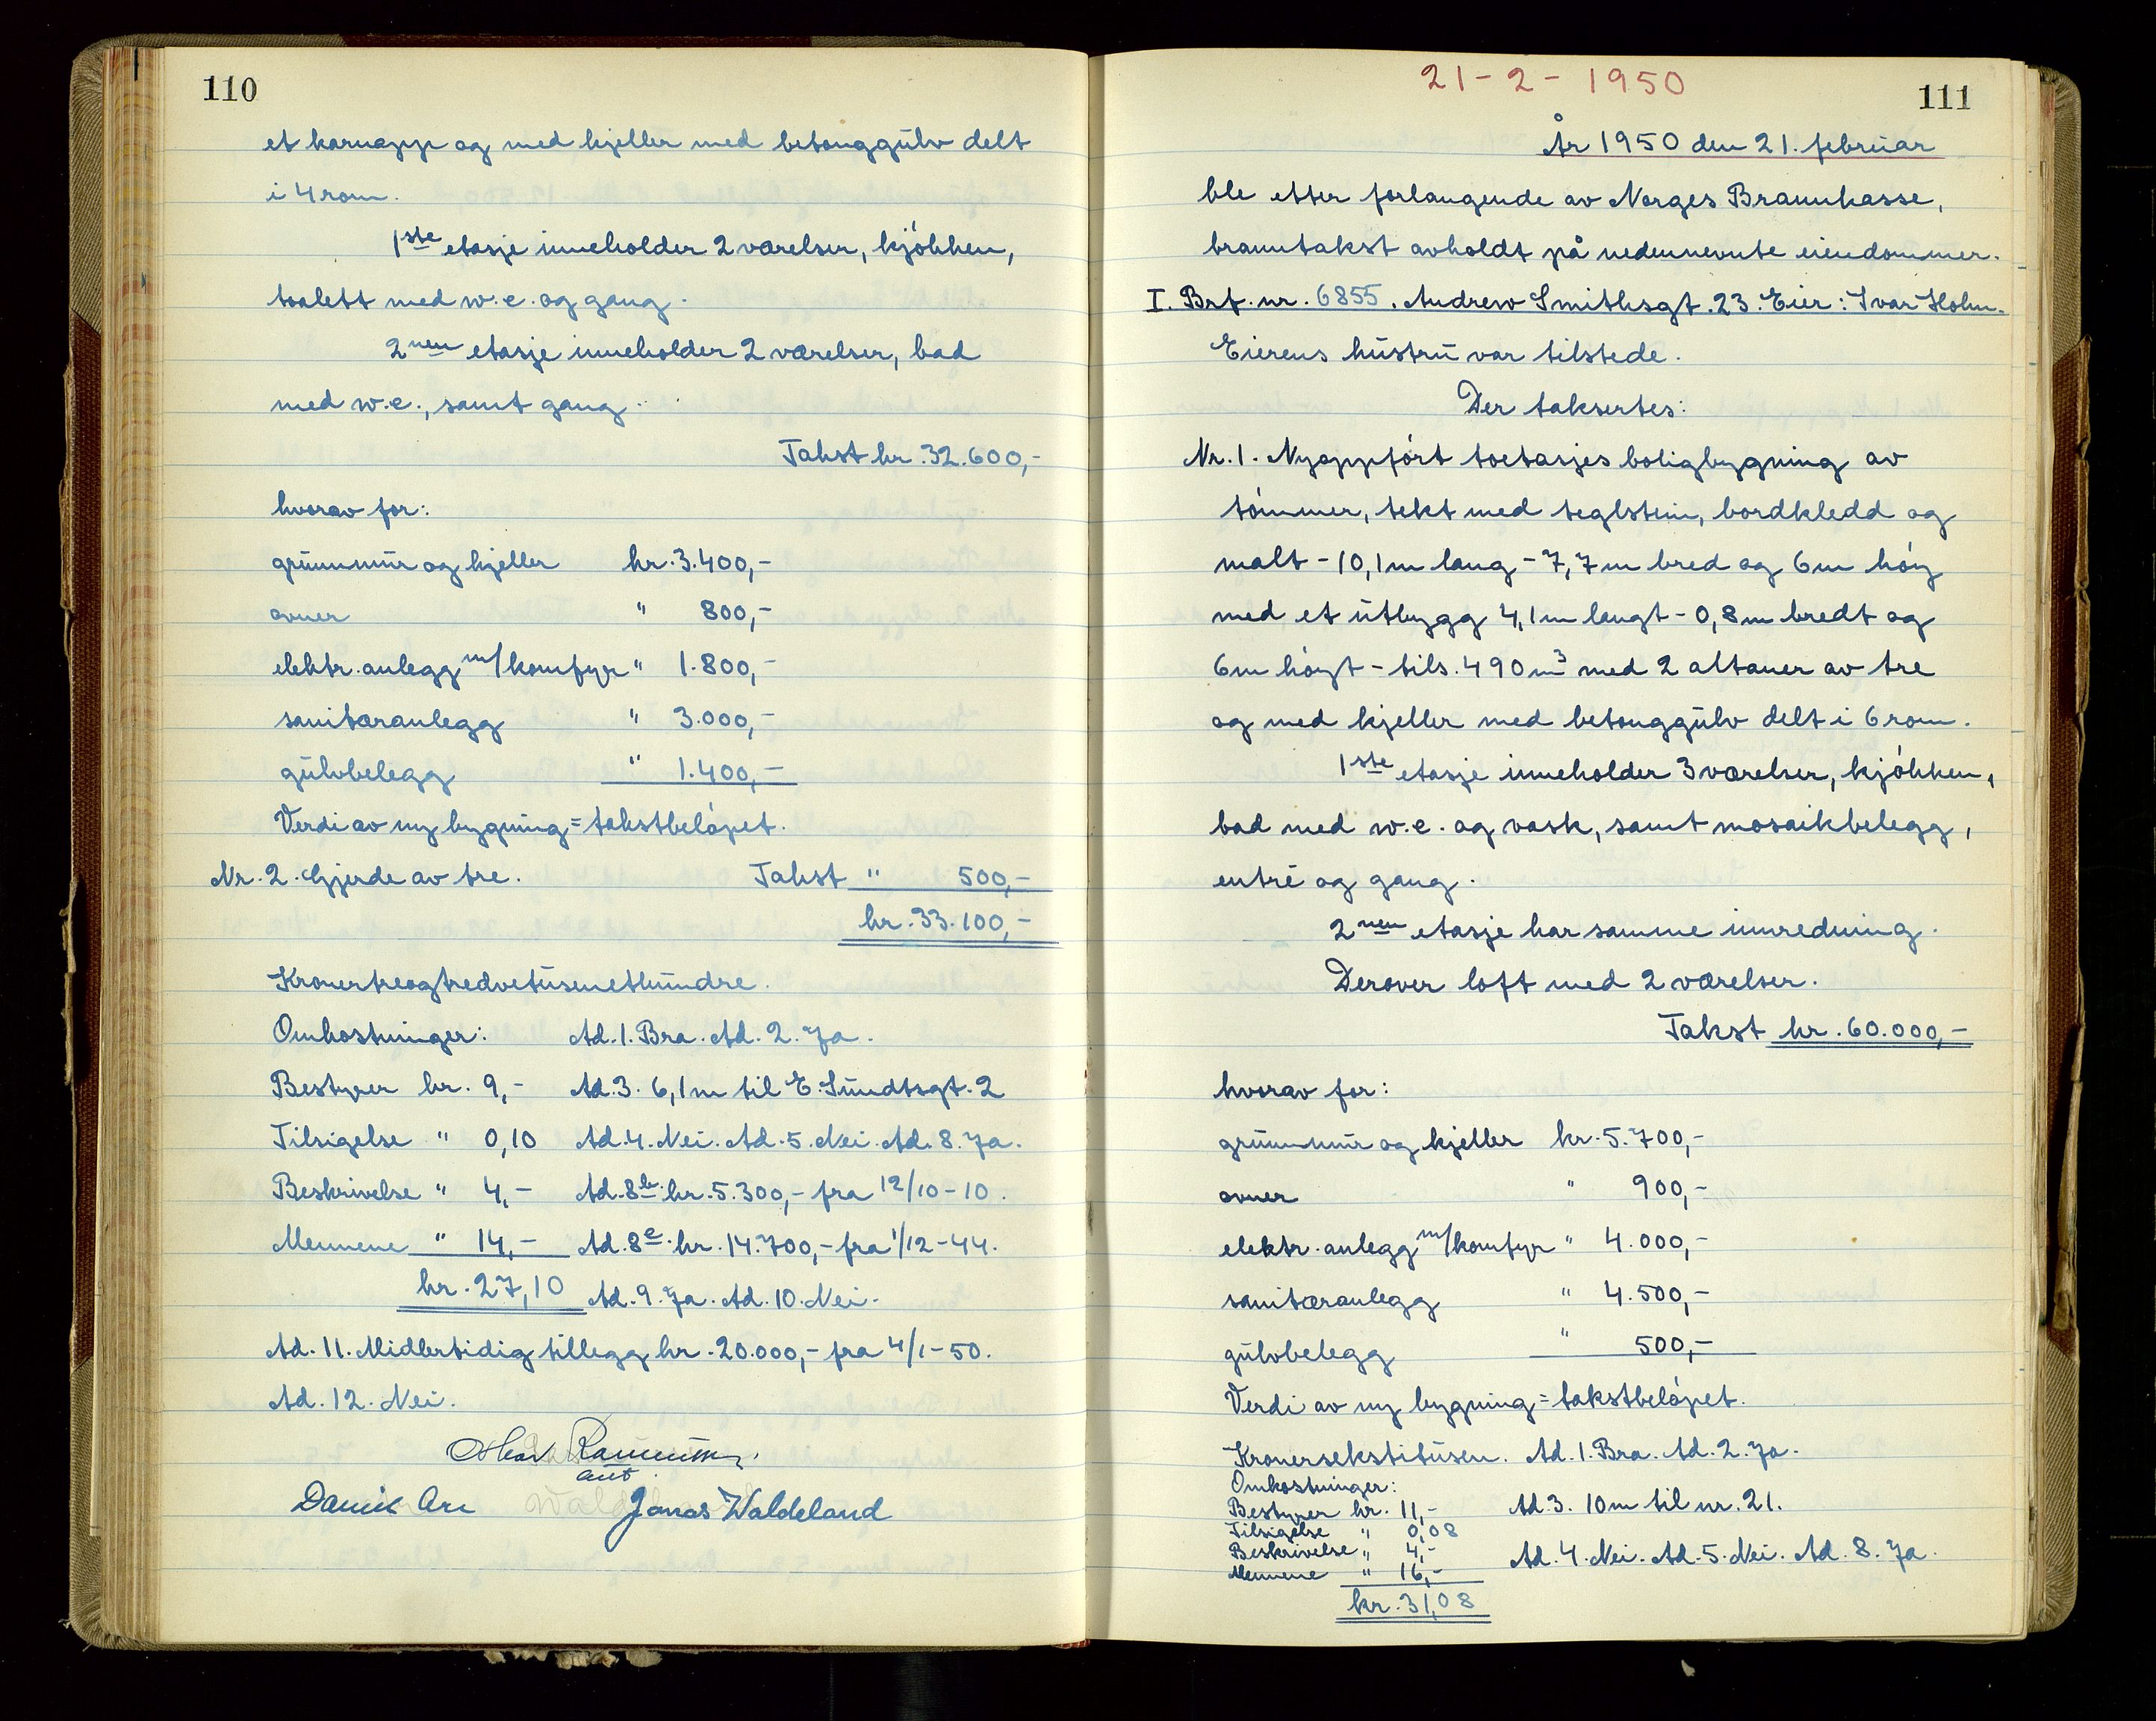 110
et karnapp og med kjeller med betonggulv delt
i 4 rom.
1ste etasje inneholder 2 værelser, kjøkken,
toalett med w.c. og gang.
2nen etasje inneholder 2 værelser, bad
med w.c., samt gang.
Takst kr. 32.600,-
hvorav for:
grunnmur og kjeller kr. 3.400,-
ovner " 800,-
elektr. anlegg m/komfyr " 1.800,-
sanitæranlegg " 3.000,-
gulvbelegg " 1.400,-
Verdi av ny bygning = takstbeløpet.
Nr. 2. Gjerde av tre. Takst " 500,-
kr. 33.100,-
Kronertreogtredvetusenethundre.
Omkostninger: Ad. 1. Bra. Ad. 2. Ja.
Bestyrer kr. 9,- Ad. 3. 6,1 m til E. Sundtsgt. 2
Tilsigelse " 0,10 Ad. 4. Nei. Ad. 5. Nei. Ad. 8. Ja.
Beskrivelse " 4,- Ad. 8b. kr. 5.300,- fra 12/10-10.
Mennene " 14,- Ad. 8c. kr. 14.700,- fra 1/12-44.
kr. 27,10 Ad. 9. Ja. Ad. 10. Nei.
Ad. 11. Midlertidig tillegg kr. 20.000,- fra 4/1-50.
Ad. 12. Nei.
Jonas Waldeland
21-2-1950
111
År 1950 den 21. februar
ble etter forlangende av Norges Brannkasse,
branntakst avholdt på nedennevnte eiendommer.
I. Brf. nr. 6855. Andrew Smithsgt. 23. Eier: Ivar Holm.
Eierens hustru var tilstede.
Der taksertes:
Nr. 1. Nyoppført toetasjes boligbygning av
tømmer, tekt med teglstein, bordkledd og
malt - 10,1 m lang - 7,7 m bred og 6 m høy
med et utbygg 4,1 m langt - 0,8 m bredt og
6 m høyt - tils. 490 m³ med 2 altaner av tre
og med kjeller med betonggulv delt i 6 rom.
1ste etasje inneholder 3 værelser, kjøkken,
bad med w.c. og vask, samt mosaikbelegg,
entré og gang.
2nen etasje har samme innredning.
Derover loft med 2 værelser.
Takst kr. 60.000,-
hvorav for:
grunnmur og kjeller kr. 5.700,-
ovner " 900,-
elektr. anlegg m/komfyr " 4.000,-
sanitæranlegg " 4.500,-
gulvbelegg " 500,-
Verdi av ny bygning = takstbeløpet.
Kronersekstitusen. Ad. 1. Bra. Ad. 2. Ja.
Omkostninger:
Bestyrer kr. 11,- Ad. 3. 10 m til nr. 21.
Tilsigelse " 0,08
Beskrivelse " 4,- Ad. 4. Nei. Ad. 5. Nei. Ad. 8. Ja.
Mennene " 16,-
kr. 31,08